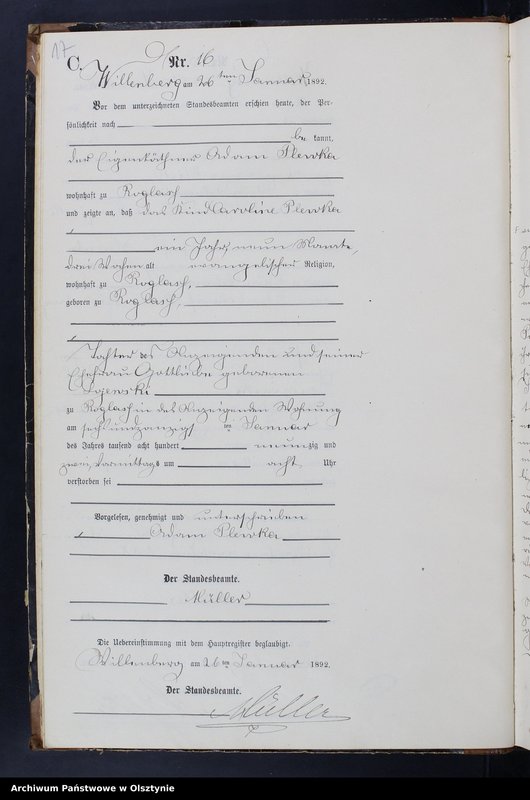 17
C.
Nr. 16
Willenberg am 26ten Januar 1892.
Vor dem unterzeichneten Standesbeamten erschien heute, der Per-
sönlichkeit nach
be kannt,
der Eigenkäthner Adam Plewka
wohnhaft zu Roglasz
und zeigte an, daß das Kind Caroline Plewka
ein Jahr, neun Monate,
drei Wochen alt, evangelischer Religion,
wohnhaft zu Roglasz,
geboren zu Roglasz,
Tochter des Anzeigenden und seiner
Ehefrau Gottliebe geborenen
zu Roglasz in des Anzeigenden Wohnung
am sechsundzwanzigsten Januar
des Jahres tausend acht hundert neunzig und
zwei, Vormittags um acht Uhr
verstorben sei
Vorgelesen, genehmigt und unterschrieben
Adam Plewka
Der Standesbeamte.
Müller
Die Uebereinstimmung mit dem Hauptregister beglaubigt.
Willenberg am 26ten Januar 1892.
Der Standesbeamte.
Müller
Archiwum Państwowe w Olsztynie